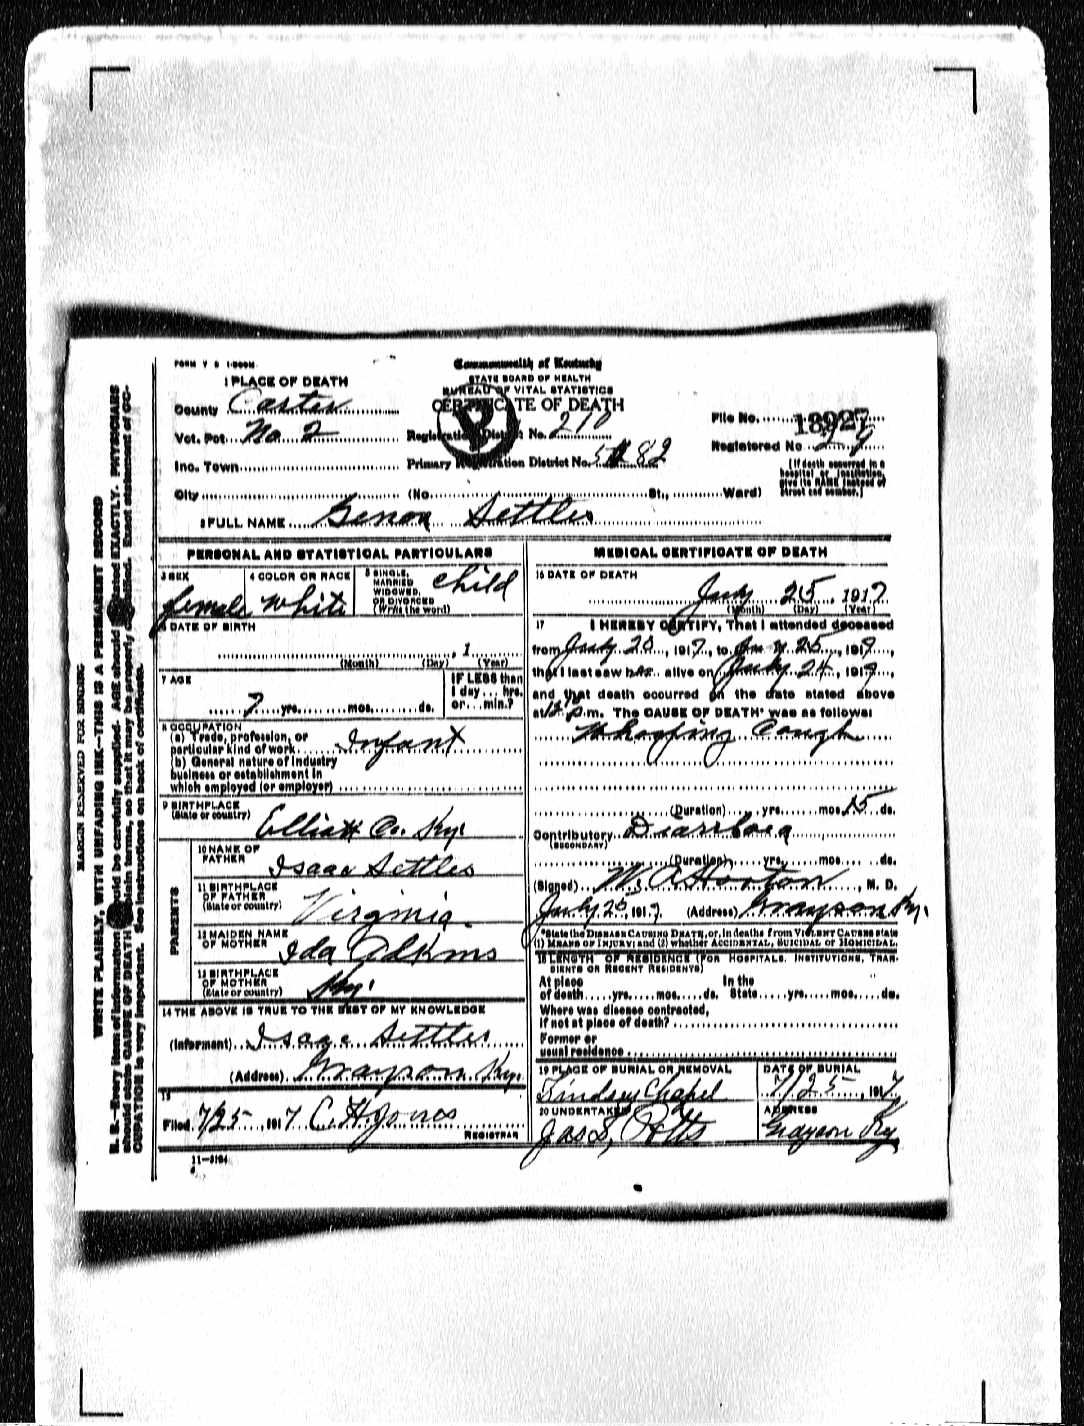 FORM V S 1-500M
Commonwealth of Kentucky
STATE BOARD OF HEALTH
BUREAU OF VITAL STATISTICS
CERTIFICATE OF DEATH
1 PLACE OF DEATH
County Carter
Vot. Pct. No. 2
Inc. Town
City (No. St., Ward)
Registration District No. 210
Primary Registration District No. 82
File No. 18927
Registered No
(If death occurred in a hospital or institution, give its NAME instead of street and number.)
2 FULL NAME Genoa Settles
PERSONAL AND STATISTICAL PARTICULARS
3 SEX
female
4 COLOR OR RACE
White
5 SINGLE, MARRIED WIDOWED, OR DIVORCED (Write the word)
child
6 DATE OF BIRTH
, 1
(Month) (Day) (Year)
7 AGE
yrs. mos. ds.
IF LESS than 1 day hrs. or min.?
8 OCCUPATION
(a) Trade, profession, or
particular kind of work Infant
(b) General nature of industry
business or establishment in
which employed (or employer)
9 BIRTHPLACE
(State or country)
Elliott Co. Ky.
PARENTS
10 NAME OF FATHER
Isaac Settles
11 BIRTHPLACE OF FATHER (State or country)
Virginia
12 MAIDEN NAME OF MOTHER
Ida Adkins
13 BIRTHPLACE OF MOTHER (State or country)
Ky.
14 THE ABOVE IS TRUE TO THE BEST OF MY KNOWLEDGE
(Informant) Isaac Settles
(Address) Grayson Ky.
15
Filed 7/25, 1917 C. H. Jones
REGISTRAR
11-3184
MEDICAL CERTIFICATE OF DEATH
16 DATE OF DEATH
July 25, 1917
(Month) (Day) (Year)
17 I HEREBY CERTIFY, That I attended deceased
from July 20, 1917, to 25, 1917,
that I last saw her alive on July 24, 1917,
and that death occurred on the date stated above
at 12 p.m. The CAUSE OF DEATH* was as follows:
Whooping Cough
(Duration) yrs. mos. 15 ds.
Contributory Diarrhoea
(SECONDARY)
(Duration) yrs. mos. ds.
(Signed) W. A. Horton, M. D.
July 25, 1917. (Address) Grayson Ky.
*State the DISEASE CAUSING DEATH, or, in deaths from VIOLENT CAUSES state
(1) MEANS OF INJURY; and (2) whether ACCIDENTAL, SUICIDAL or HOMICIDAL.
18 LENGTH OF RESIDENCE (FOR HOSPITALS, INSTITUTIONS, TRANSIENTS OR RECENT RESIDENTS)
At place In the
of death yrs. mos. ds. State yrs. mos. ds.
Where was disease contracted,
if not at place of death?
Former or
usual residence
19 PLACE OF BURIAL OR REMOVAL
Lindsey Chapel
DATE OF BURIAL
7/25, 1917
20 UNDERTAKER
Jas S. Potts
ADDRESS
Grayson Ky
MARGIN RESERVED FOR BINDING
WRITE PLAINLY, WITH UNFADING INK—THIS IS A PERMANENT RECORD
N. B.—Every item of information should be carefully supplied. AGE should be stated EXACTLY. PHYSICIANS
should state CAUSE OF DEATH in plain terms, so that it may be properly classified. Exact statement of OC-
CUPATION is very important. See instructions on back of certificate.